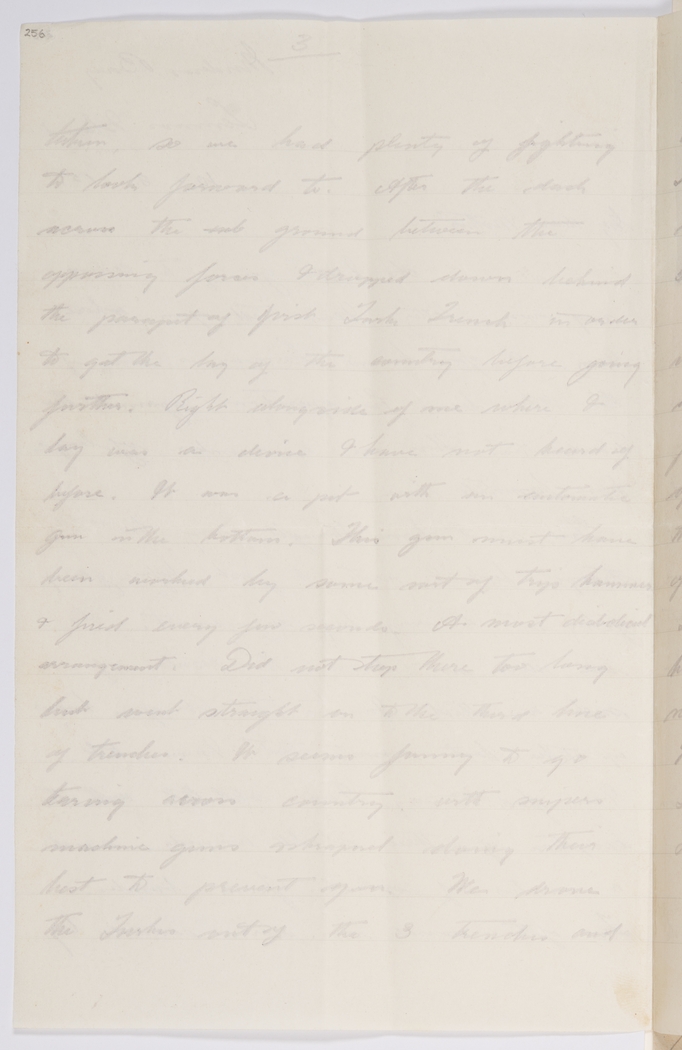 256
3
so we had plenty of fighting
to look forward to. After the dash
across the ground between the
opposing forces I dropped down behind
the parapet of first Turks Trench in order
to get the lay of the country before going
further. Right alongside of me where I
lay was a device I have not heard of
before. It was a pit with an automatic
gun in the bottom. This gun must have
been worked by some sort of trip hammer
& fired every few seconds. A most diabolical
arrangement. Did not stop there too long
but went straight on to the third line
of trenches. It seems funny to go
taring across country with snipers
machine guns shrapnel doing their
best to prevent you. We drove
the Turks out of the 3 trenches and